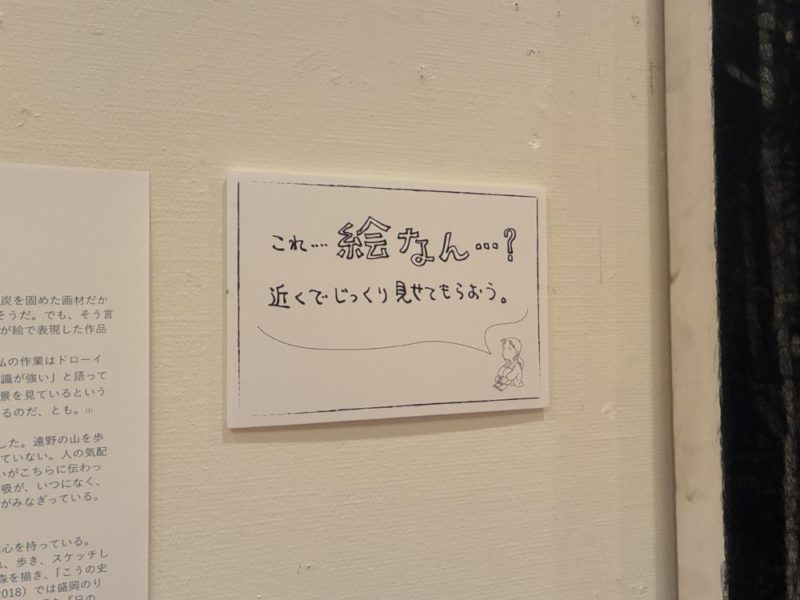 炭を固めた画材だか
そうだ。でも、そう言
が絵で表現した作品
私の作業はドローイ
識が強い」と語って
景を見ているという
るのだ、とも。
した。遠野の山を歩
ていない。人の気配
いがこちらに伝わっ
吸が、いつになく、
がみなぎっている。
心を持っている。
れ、歩き、スケッチし
森を描き、「こうの史
2018）では盛岡のり
これ…. 絵なん…?
近くでじっくり見せてもらおう。